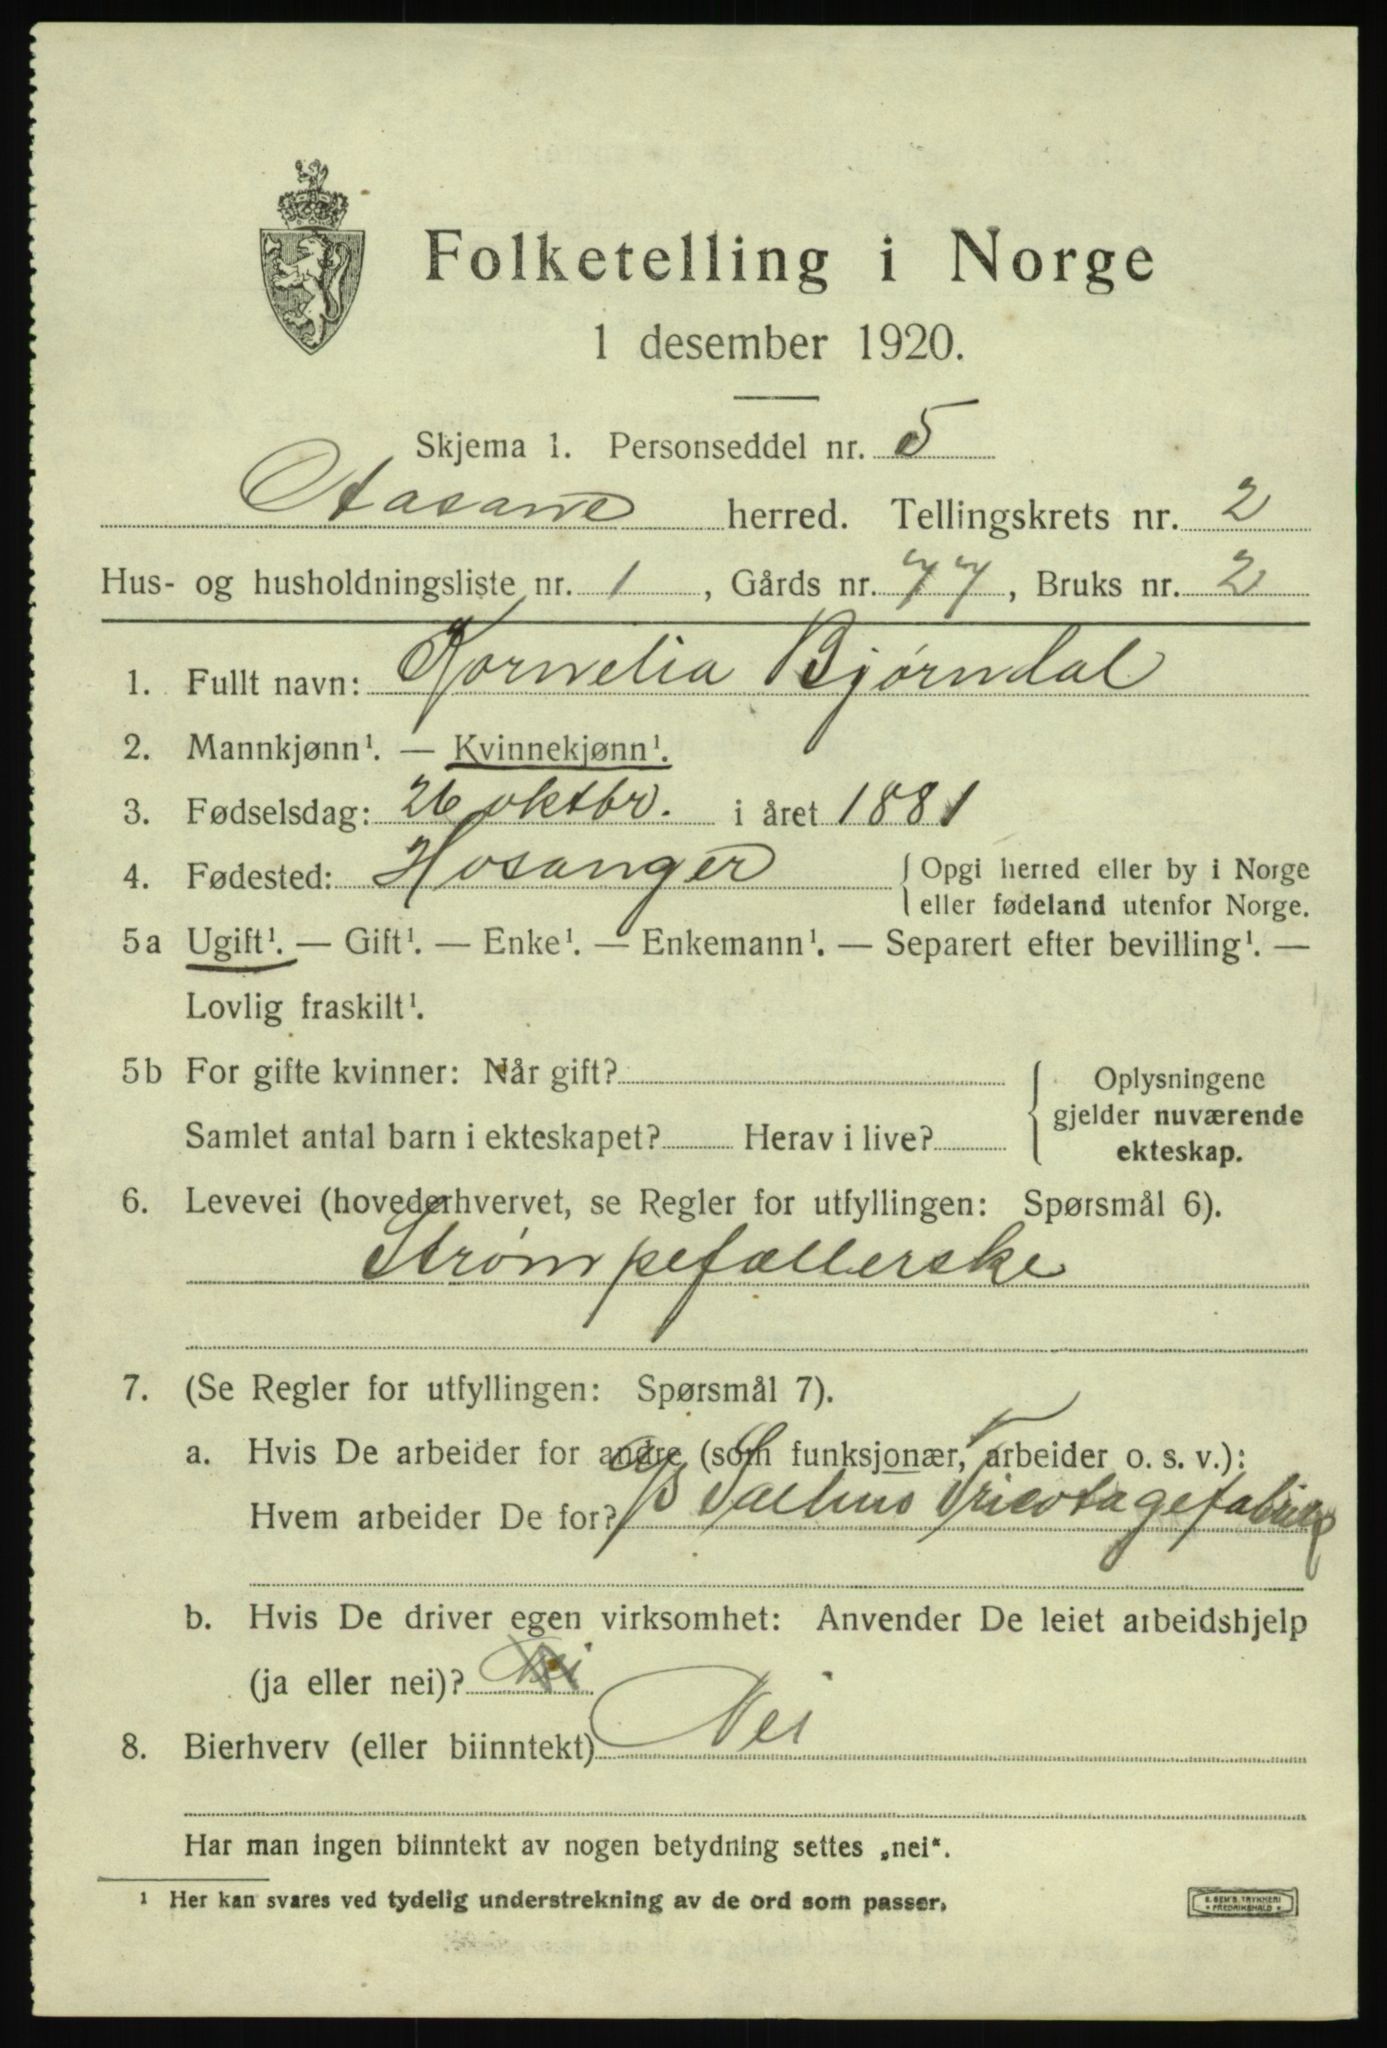 Folketelling i Norge
1 desember 1920.
Skjema 1. Personseddel nr. 5
Aasane herred. Tellingskrets nr. 2
Hus- og husholdningsliste nr. 1, Gårds nr. 77, Bruks nr. 2
1. Fullt navn: Kornelia Bjørndal
2. Mannkjønn¹. — Kvinnekjønn¹.
3. Fødselsdag: 26 oktbr. i året 1881
4. Fødested: Hosanger { Opgi herred eller by i Norge
eller fødeland utenfor Norge.
5a Ugift¹. — Gift¹. — Enke¹. — Enkemann¹. — Separert efter bevilling¹. —
Lovlig fraskilt¹.
5b For gifte kvinner: Når gift? { Oplysningene
gjelder nuværende
Samlet antal barn i ekteskapet? Herav i live?
ekteskap.
6. Levevei (hovederhvervet, se Regler for utfyllingen: Spørsmål 6).
Strømpefællerske
7. (Se Regler for utfyllingen: Spørsmål 7).
a. Hvis De arbeider for andre (som funksjonær, arbeider o. s. v.):
Hvem arbeider De for? Salhus Tricotagefabrik
b. Hvis De driver egen virksomhet: Anvender De leiet arbeidshjelp
(ja eller nei)? Nei
8. Bierhverv (eller biinntekt) Nei
Har man ingen biinntekt av nogen betydning settes „nei“.
¹ Her kan svares ved tydelig understrekning av de ord som passer.
E. SEM'S TRYKKERI
* FREDRIKSHALD *